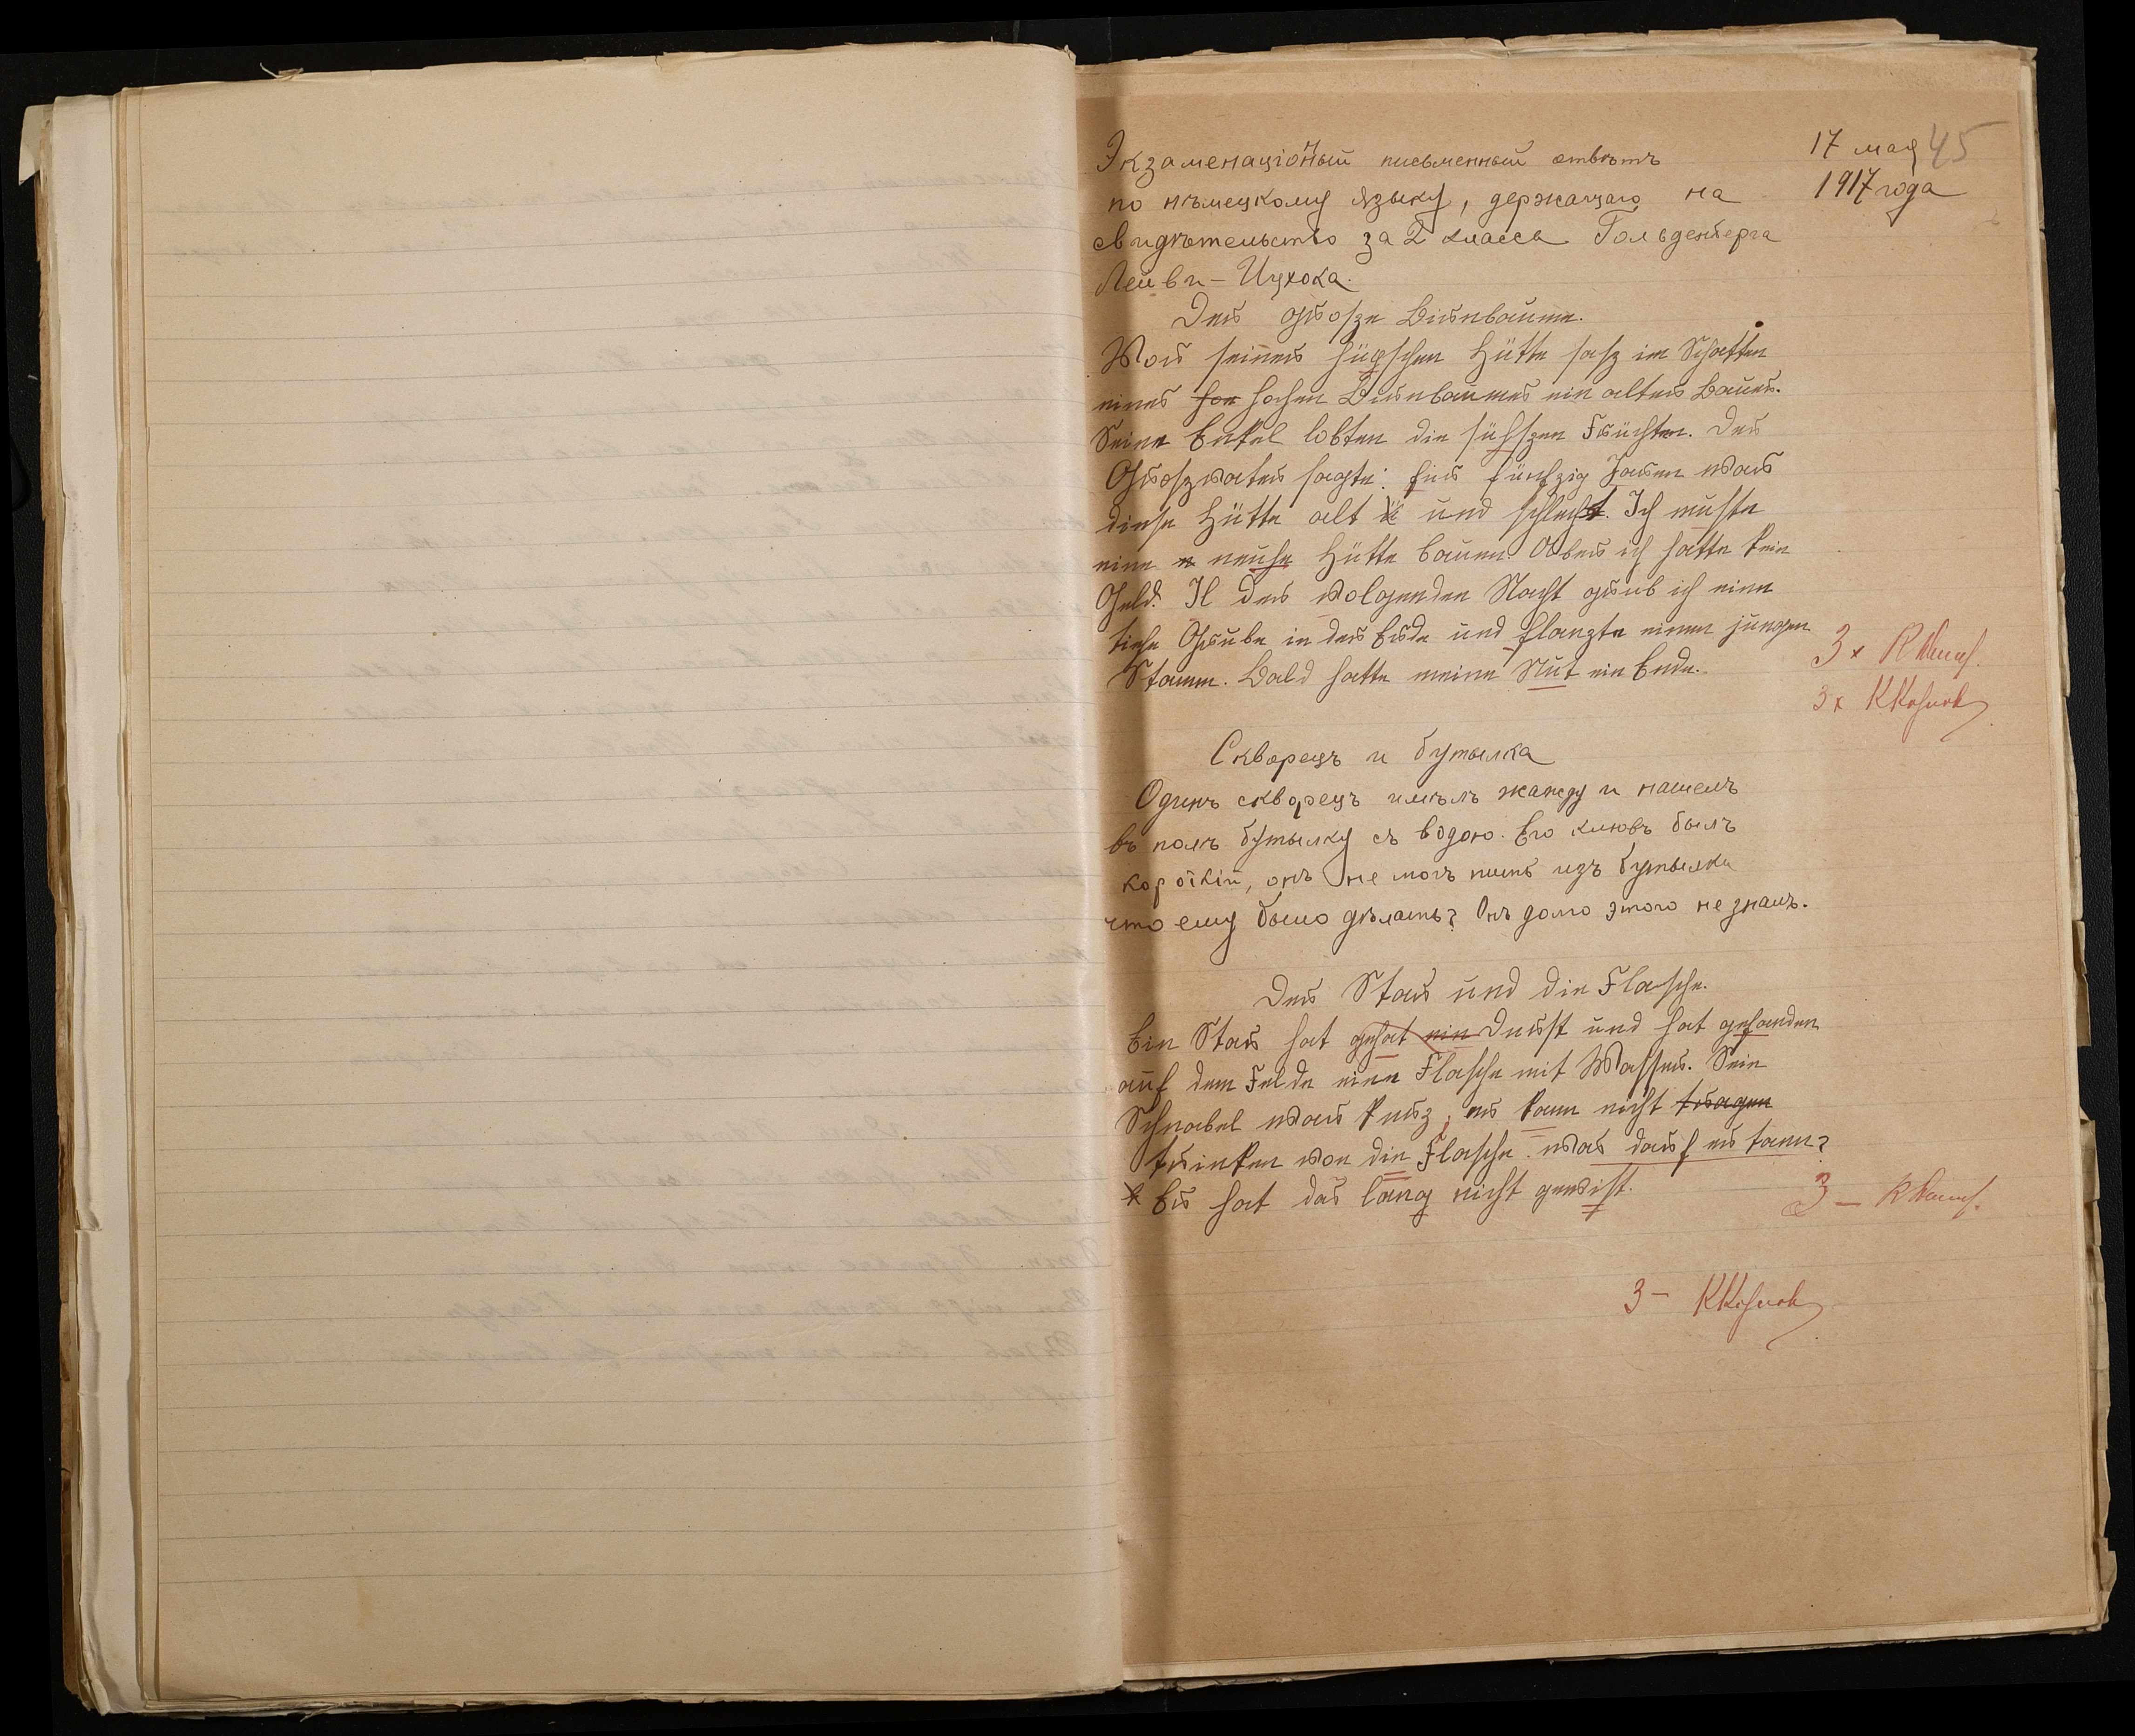 17 мая 45
1917 года
Экзаменаціоный письменный отвѣтъ
по нѣмецкому языку, держащаго на
свидѣтельство за 2 класса Гольденберга
Лейви-Ицхока.
Der grosze Birnbaum.
Wor seiner hüpschen Hütte sasz im Schatten
eines hoe hohen Birnbaumes ein alter Bauer.
Seine Enkel lobten die sühszen Früchten. Der
Groszwater sagte: fir fünfzig Jaren war
diese Hütte alt und schlecht. Ich muste
eine n neuhe Hütte bauen. Aber ich hatte kein
Geld. Il der wolgenden Nacht grub ich eine
tiefe Grube in der Erde und flanzte einen jungen
Stamm. Bald hatte meine Nut ein Ende.
3×
3×
Скворецъ и бутылка
Одинъ скворецъ имѣлъ жажду и нашелъ
въ полѣ бутылку съ водою. Его клювъ былъ
короткій, онъ не могъ пить изъ бутылки
что ему было дѣлать? Онъ долго этого не зналъ.
Der Star und die Flasche.
Ein Star hat gehat ein Durst und hat gefanden
auf dem Felde eine Flasche mit Wasser. Sein
Schnabel war kurz, er kann nicht tragen
trinken won die Flasche. was darf er tann?
Er hat das lang nicht gewist.
3 –
3 –